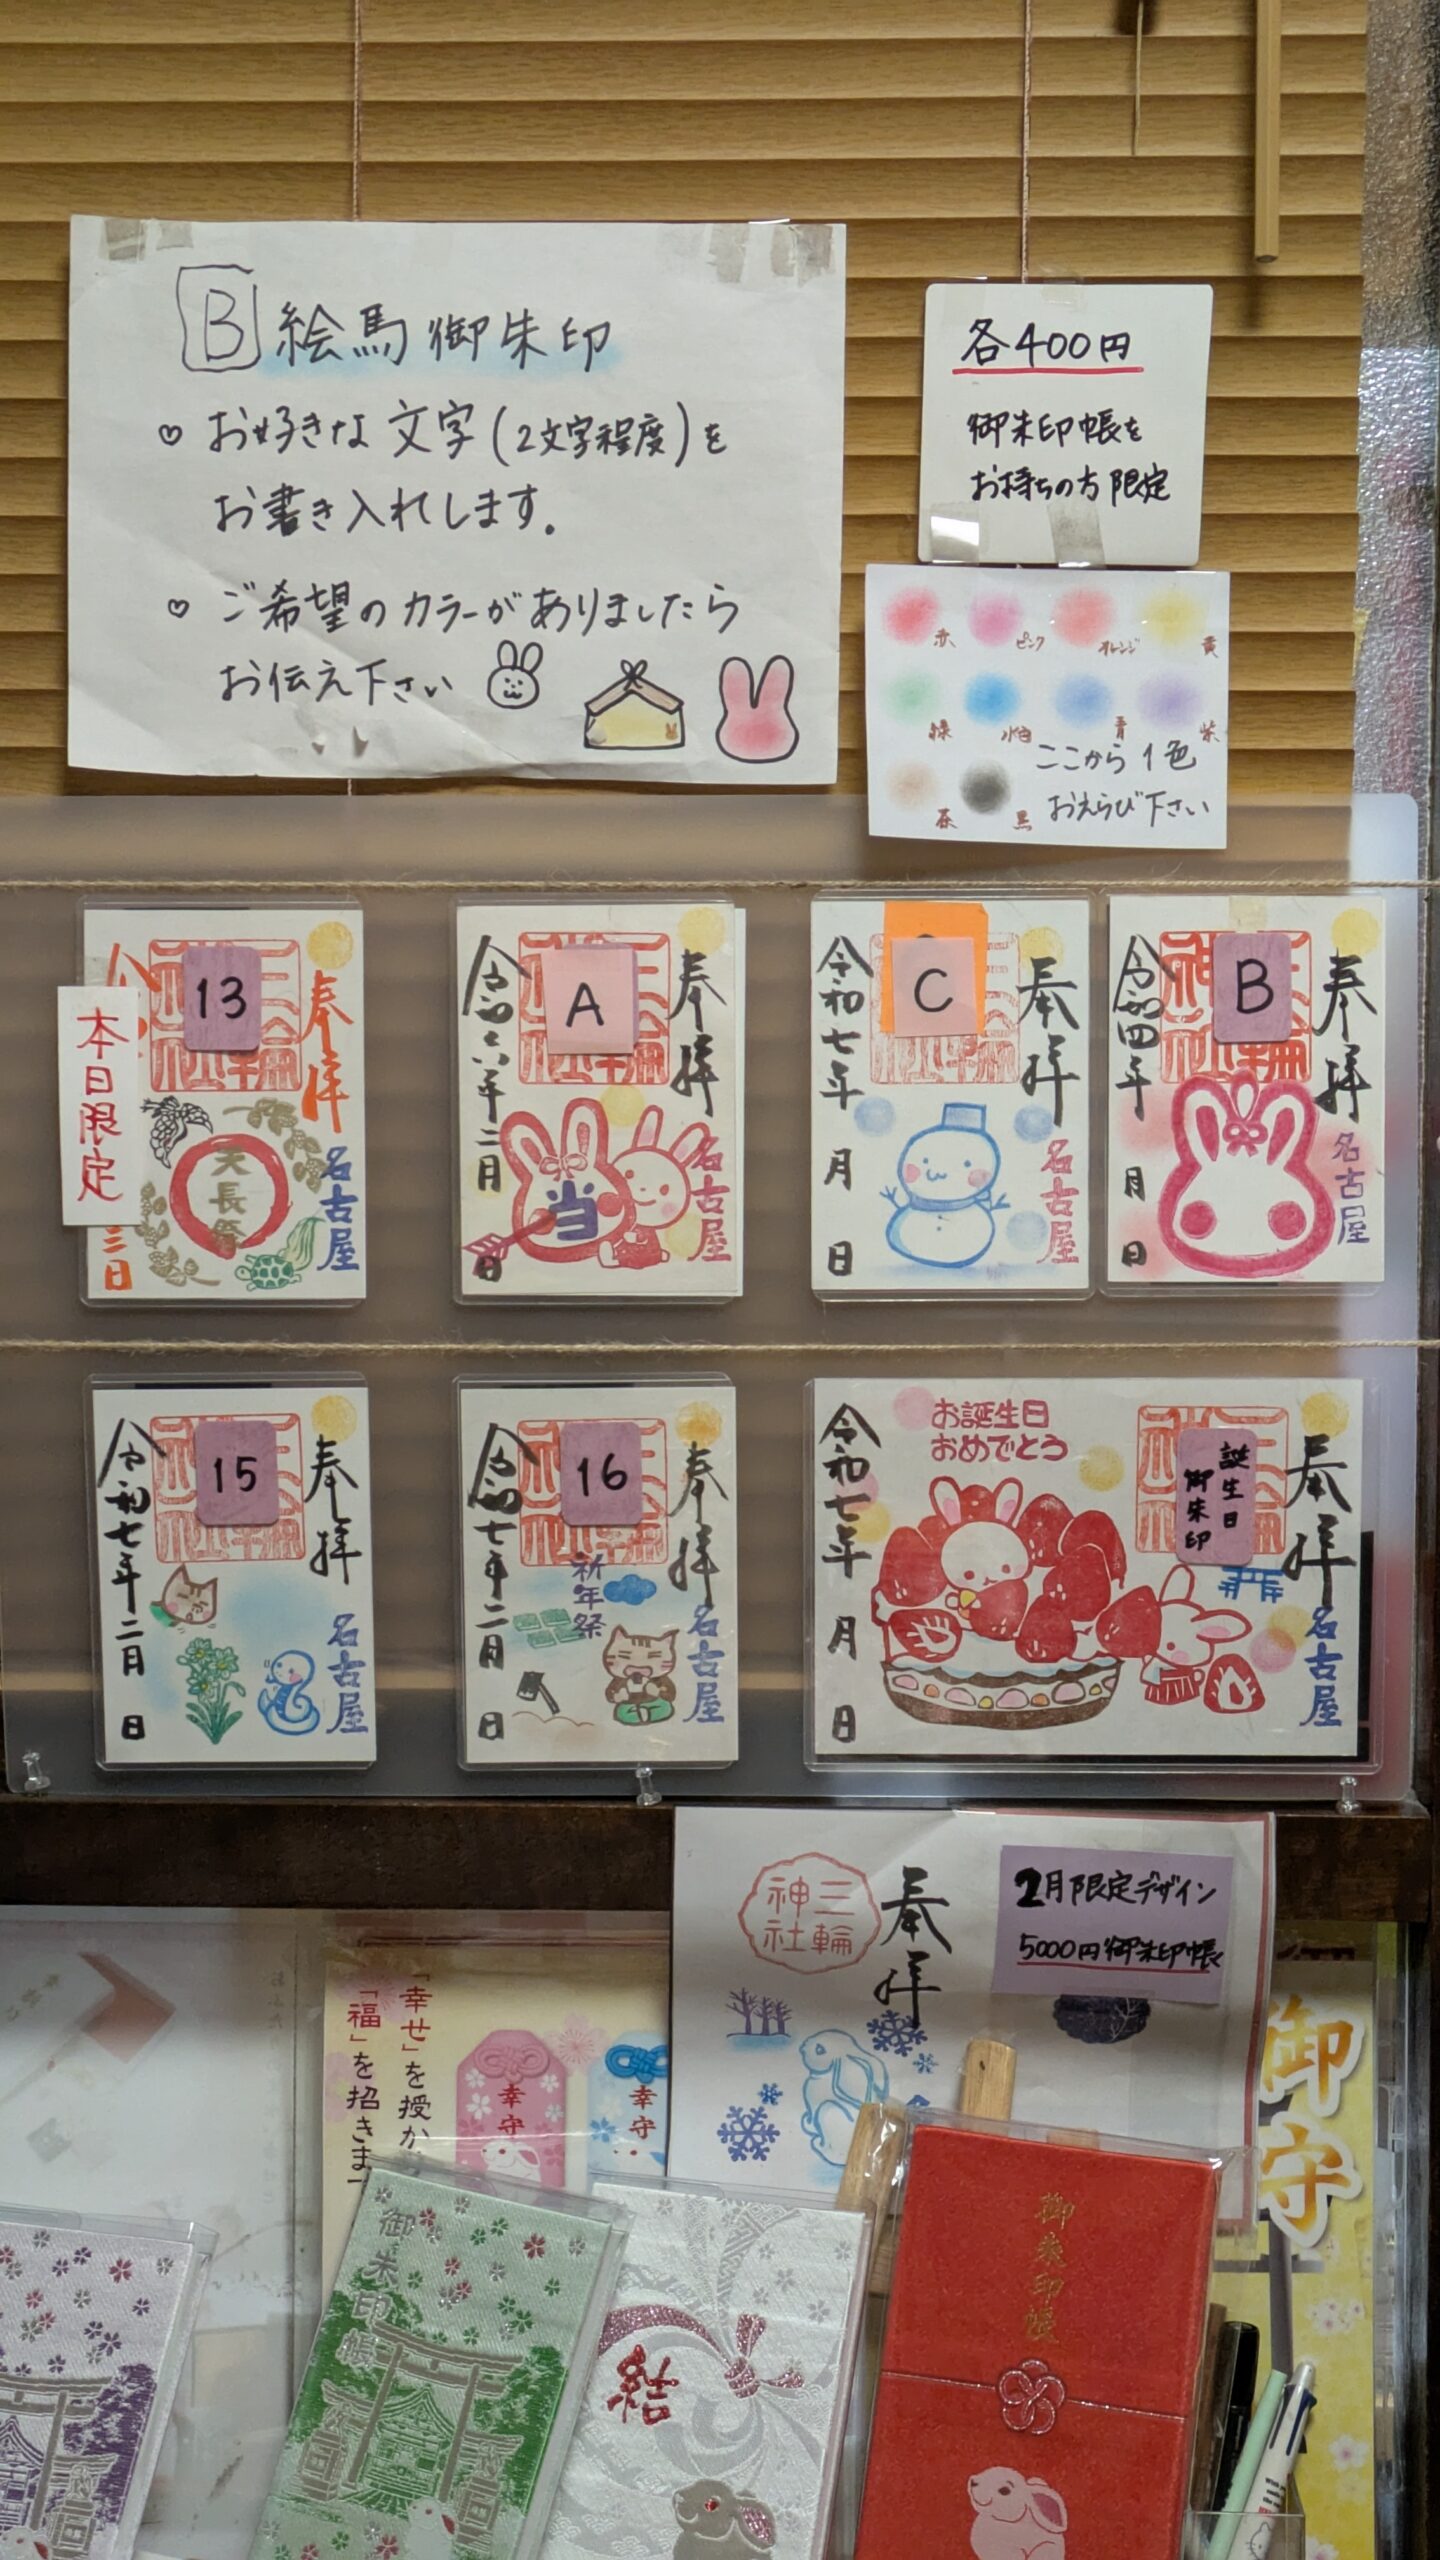 B 絵馬御朱印
♡ お好きな文字(2文字程度)を
お書き入れします。
♡ ご希望のカラーがありましたら
お伝え下さい
各400円
御朱印帳を
お持ちの方限定
赤 ピンク オレンジ 黄
緑 水色 青 紫
茶 黒
ここから1色
おえらび下さい
本日限定
13
奉拝
天長祭
名古屋
三日
A
奉拝
令和六年二月
日
当
名古屋
C
奉拝
令和七年
月
日
名古屋
B
奉拝
令和四年
月
日
名古屋
15
奉拝
令和七年二月
日
名古屋
16
奉拝
祈年祭
令和七年二月
日
名古屋
お誕生日
おめでとう
誕生日
御朱印
奉拝
令和七年
月
日
名古屋
三輪
神社
奉拝
2月限定デザイン
5000円御朱印帳
「幸せ」を授か
「福」を招きま
幸守
幸守
御守
御朱印帳
結
御朱印帳